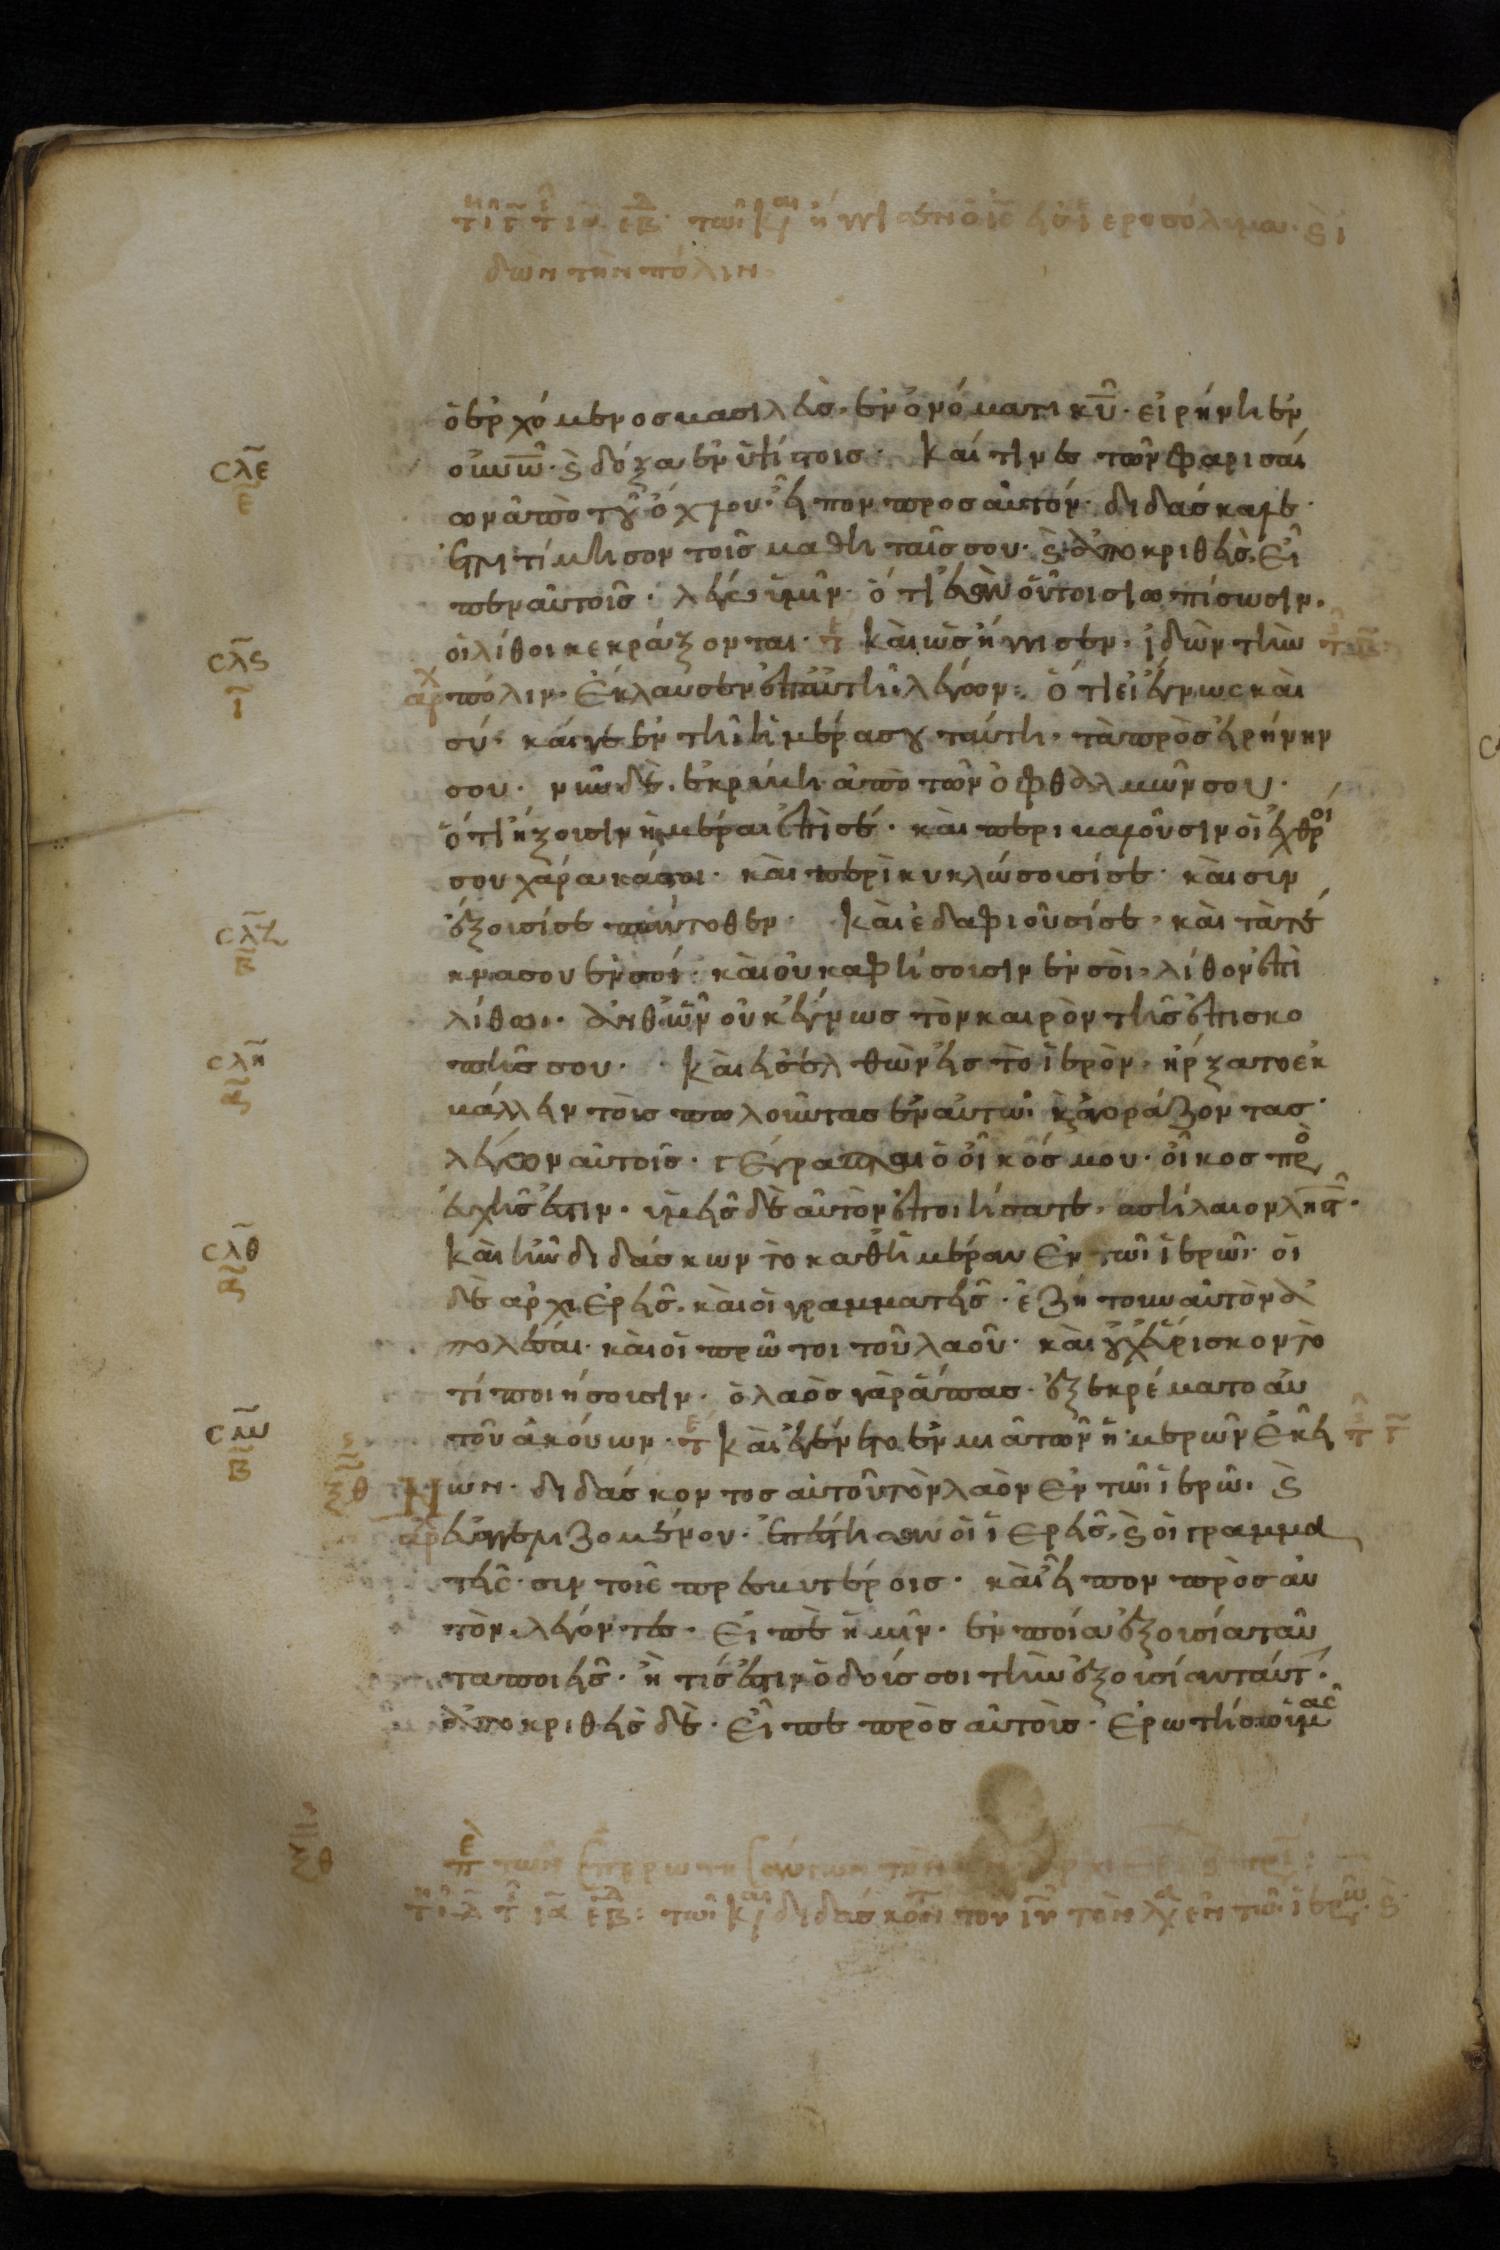 τῇ γ τῆς ια ἑβδ. τῶ καιρῶ ἤγγισεν ὁ ις εἰς ἱεροσόλυμα. ϗ ἰ
δὼν τὴν πόλιν.
ὁ ἐρχόμενος βασιλεὺς. ἐν ὀνόματι κυ. εἰρήνη ἐν
σλε ε
οὐνω. ϗ δόξα ἐν ὑψίστοις. καί τινες τῶν φαρισαί
ων ἀπὸ τοῦ ὄχλου. εἶπον προς αὐτόν. διδάσκαλε.
ἐπιτίμησον τοῖς μαθηταῖς σου. ϗ ἀποκριθεὶς, εἶ
πεν αὐτοῖς. λέγω ὑμῖν. ὅτι ἐὰν οὗτοι σιωπίσωσιν.
σλς ι
οἱ λίθοι κεκράξονται. τε και ὡς ἤγγισεν, ἰδὼν τὴν
αρχ πόλιν. ἔκλαυσεν ἐπ' αὐτῆ. λέγων. ὅτι εἰ ἔγνως καὶ
σύ. καίγε ἐν τῆ ἡμέρα σου ταύτη. τὰ πρὸς εἰρήνην
σου. νῦν δὲ. ἐκρύβη ἀπὸ τῶν ὀφθαλμῶν σου.
ὅτι ἥξουσιν ἡμέραι ἐπὶ σέ. καὶ περιβαλοῦσιν οἱ ἐχθροί
σου χάρακά σοι. καὶ περὶκυκλώσουσί σε. καὶ συν
σλζ β
έξουσί σε πάντοθεν. καὶ ἐδαφιοῦσί σε. καὶ τὰ τέ
κνα σου ἐν σοί. καὶ οὐκ αφήσουσιν ἐν σοὶ. λίθον ἐπὶ
λίθω. ἀνθ' ὧν οὐκ ἔγνως τὸν καιρὸν τῆς ἐπισκο
σλη α
πῆς σου. καὶ εἰσελθὼν εἰς τὸ ἱερὸν. ἤρξατο ἐκ
βάλλειν τοὺς πωλοῦντας ἐν αὐτῶ. ϗ ἀγοράζοντας.
λέγων αὐτοῖς. γέγραπται ὁ οἶκός μου. οἶκος προσ
ευχῆς ἐστιν. ὑμεῖς δὲ αὐτὸν ἐποιήσατε. σπήλαιον ληστ.
σλθ α
καὶ ἦν διδάσκων το καθ' ἡμέραν ἐν τῶ ἱερῶ. οἱ
δὲ ἀρχιερεῖς. καὶ οἱ γραμματεῖς. ἐζήτουν αὐτὸν ἀ
πολέσαι. καὶ οἱ πρῶτοι τοῦ λαοῦ. καὶ οὐχ εὕρισκον τὸ
τί ποιήσουσιν. ὁ λαὸς γὰρ ἅπας. ἐξεκρέματο αὐ
σμ β
τοῦ ἀκούων. τε καὶ ἐγένετο ἐν μιᾶ τῶν ἡμερῶν ἐκεί
ξθ νων. διδάσκοντος αὐτοῦ τὸν λαὸν ἐν τῶ ἱερῶ. ϗ
αρ εὐαγγελιζομένου. ἐπέστησαν οἱ ἱερεῖς, ϗ οἱ γραμμα
τεῖς. σὺν τοῖς πρεσβυτέροις. καὶ εἶπον πρὸς αὐ
τὸν. λέγοντες. εἰπὲ ἡμῖν. ἐν ποία ἐξουσία ταῦ
τα ποιεῖς. ἢ τίς ἐστιν ὁ δούς σοι τὴν ἐξουσίαν ταύτ.
ἀποκριθεὶς δὲ. εἶπε πρὸς αὐτοὺς. ἐρωτήσω ὑμᾶς
ξθ
περὶ τῶν ἐπερρωτησάντων τὸν
ια ἑβδ: τῶ καιρῶ διδάσκοντος τοῦ ιυ τὸν λαὸν ἐν τῶ ἱερῶ. ϗ